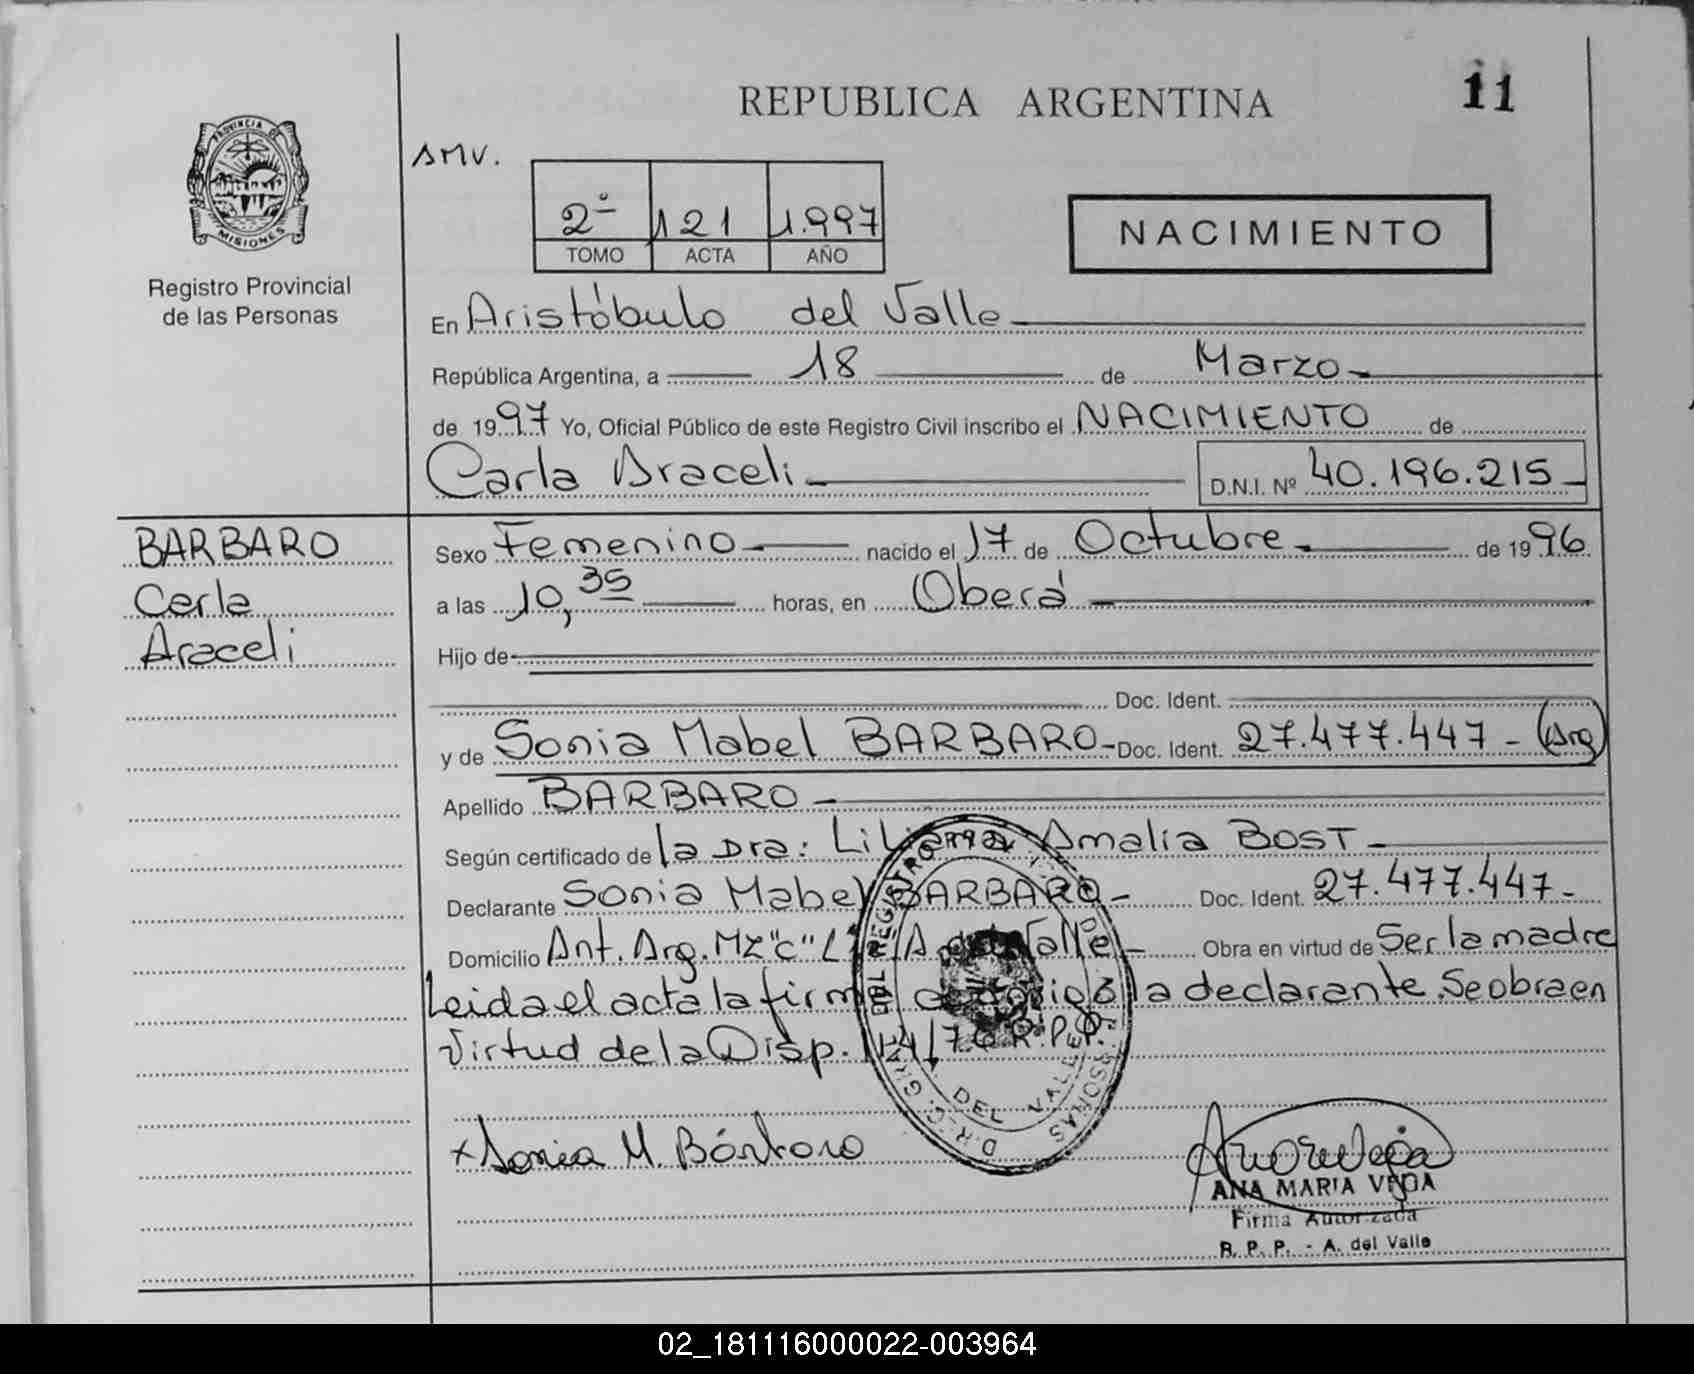 REPUBLICA ARGENTINA
11
PROVINCIA DE
MISIONES
Registro Provincial
de las Personas
SMV.
2º 121 1.997
TOMO ACTA AÑO
NACIMIENTO
En Aristóbulo del Valle
República Argentina, a 18 de Marzo
de 1997 Yo, Oficial Público de este Registro Civil inscribo el NACIMIENTO de
Carla Araceli D.N.I. Nº 40.196.215
BARBARO
Carla
Araceli
Sexo Femenino nacido el 17 de Octubre de 1996
a las 10,35 horas, en Oberá
Hijo de
Doc. Ident.
y de Sonia Mabel BARBARO - Doc. Ident. 27.477.447 - (Arg)
Apellido BARBARO
Según certificado de la Dra: Liliana Amalia BOST
Declarante Sonia Mabel BARBARO - Doc. Ident. 27.477.447 -
Domicilio Ant. Arg. Mz "C" Valle - Obra en virtud de Ser la madre
Leida el acta la firma la declarante. Se obra en
Virtud de la Disp. R.P.P.
DEL VALLE
x Sonia M. Bárbaro
ANA MARIA VEGA
Firma Autorizada
R. P. P. - A. del Valle
02_181116000022-003964